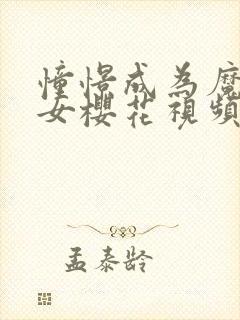 憧憬成為魔
女櫻花視頻
孟泰龄